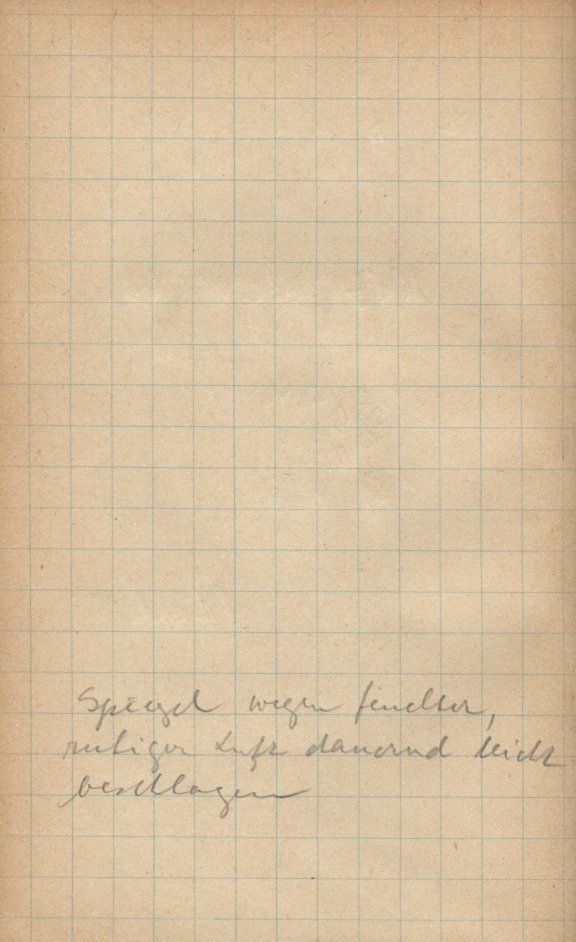 Spiegel wegen feuchter,
ruhiger Luft dauernd leicht
beschlagen